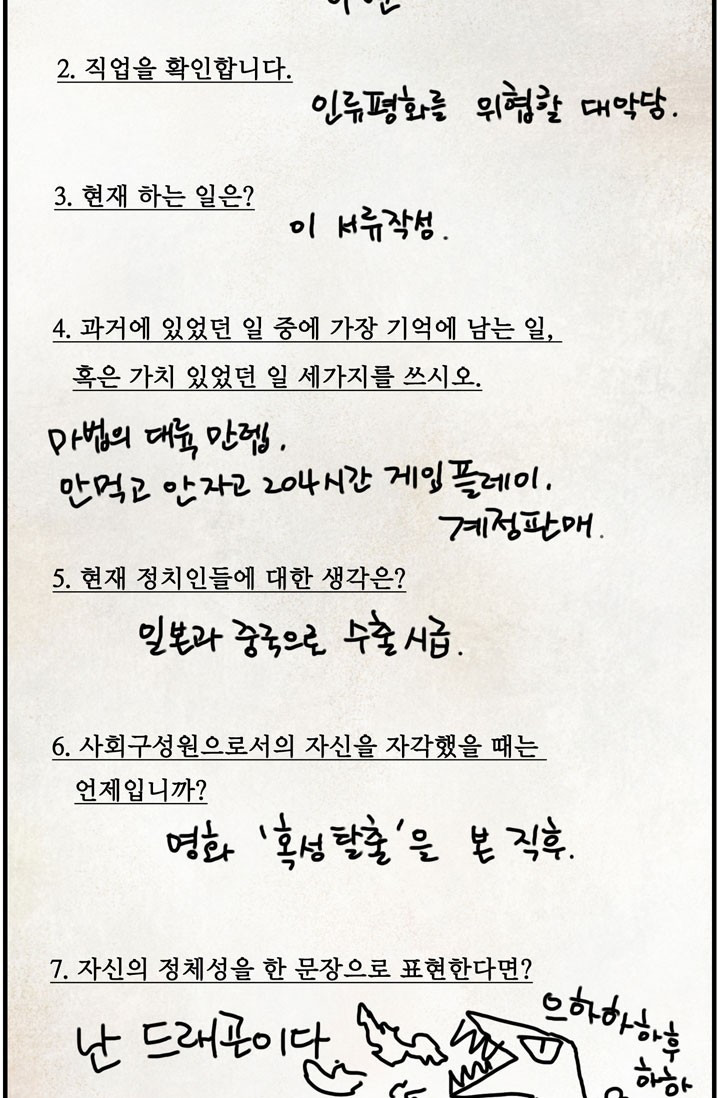 2. 직업을 확인합니다.
인류평화를 위협할 대악당.
3. 현재 하는 일은?
이 서류작성.
4. 과거에 있었던 일 중에 가장 기억에 남는 일,
혹은 가치 있었던 일 세가지를 쓰시오.
마법의 대륙 만렙.
안먹고 안자고 204시간 게임플레이.
계정판매.
5. 현재 정치인들에 대한 생각은?
일본과 중국으로 수출시급.
6. 사회구성원으로서의 자신을 자각했을 때는
언제입니까?
영화 '혹성탈출'을 본 직후.
7. 자신의 정체성을 한 문장으로 표현한다면?
난 드래곤이다
으하하하후
하하